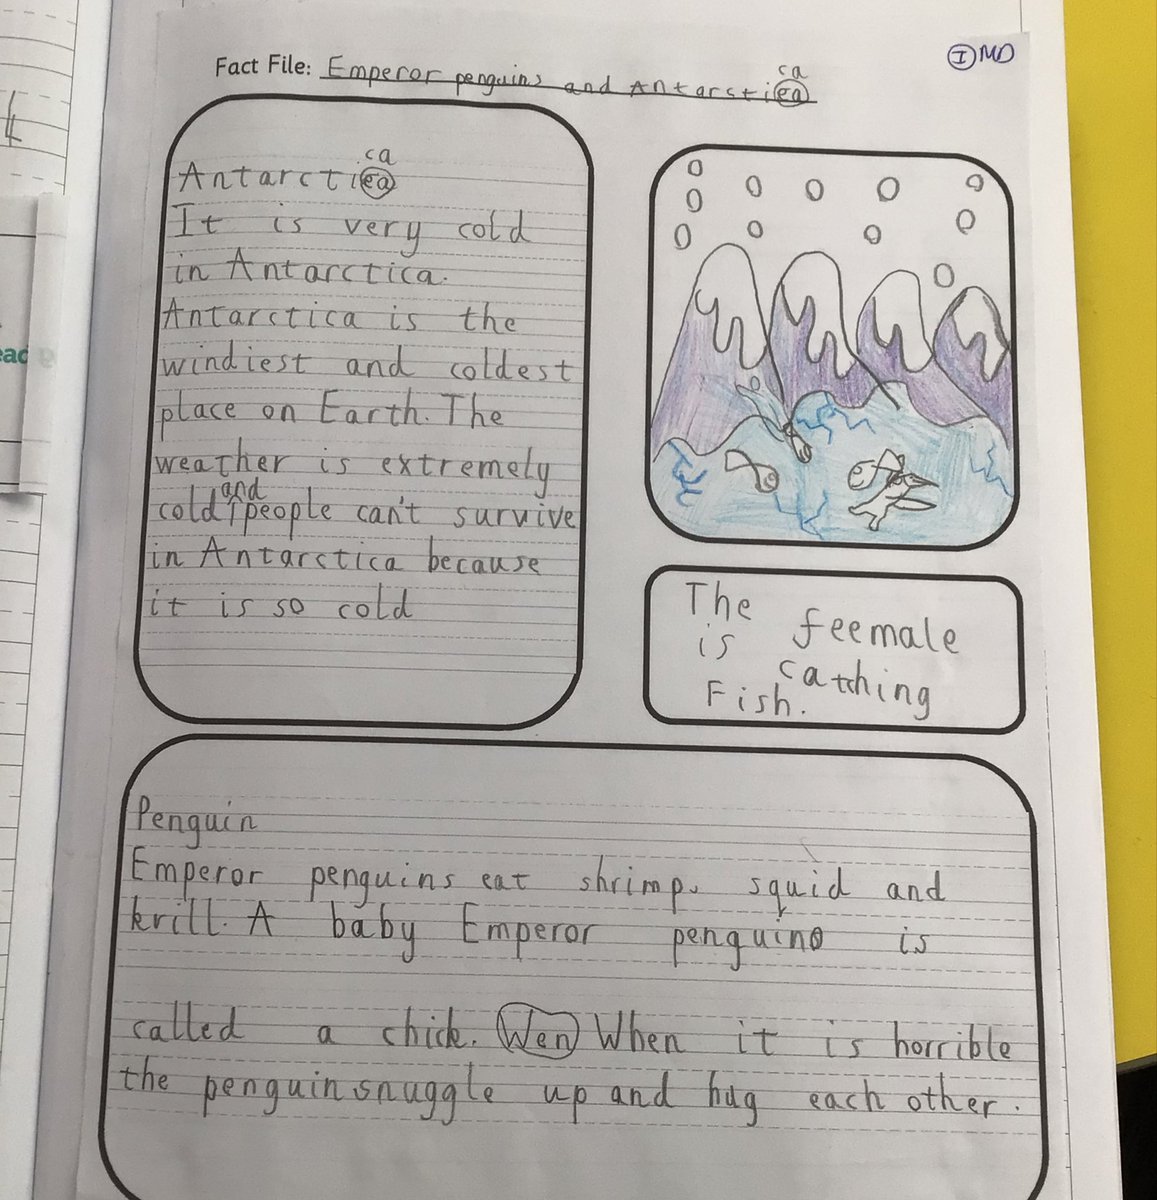 Ⓘ MD
ca
Fact File: Emperor penguins and Antarstiea
ca
Antarctiea
It is very cold
in Antarctica.
Antarctica is the
windiest and coldest
place on Earth. The
weather is extremely
and
cold people can't survive
in Antarctica because
it is so cold
The feemale
is catching
Fish.
Penguin
Emperor penguins eat shrimp, squid and
krill. A baby Emperor penguino is
called a chick. Wen When it is horrible
the penguin snuggle up and hug each other.